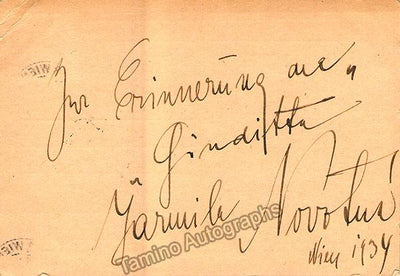 Zur Erinnerung an „
Giuditta
Jarmila Novotná
Wien 1934
Tamino Autographs